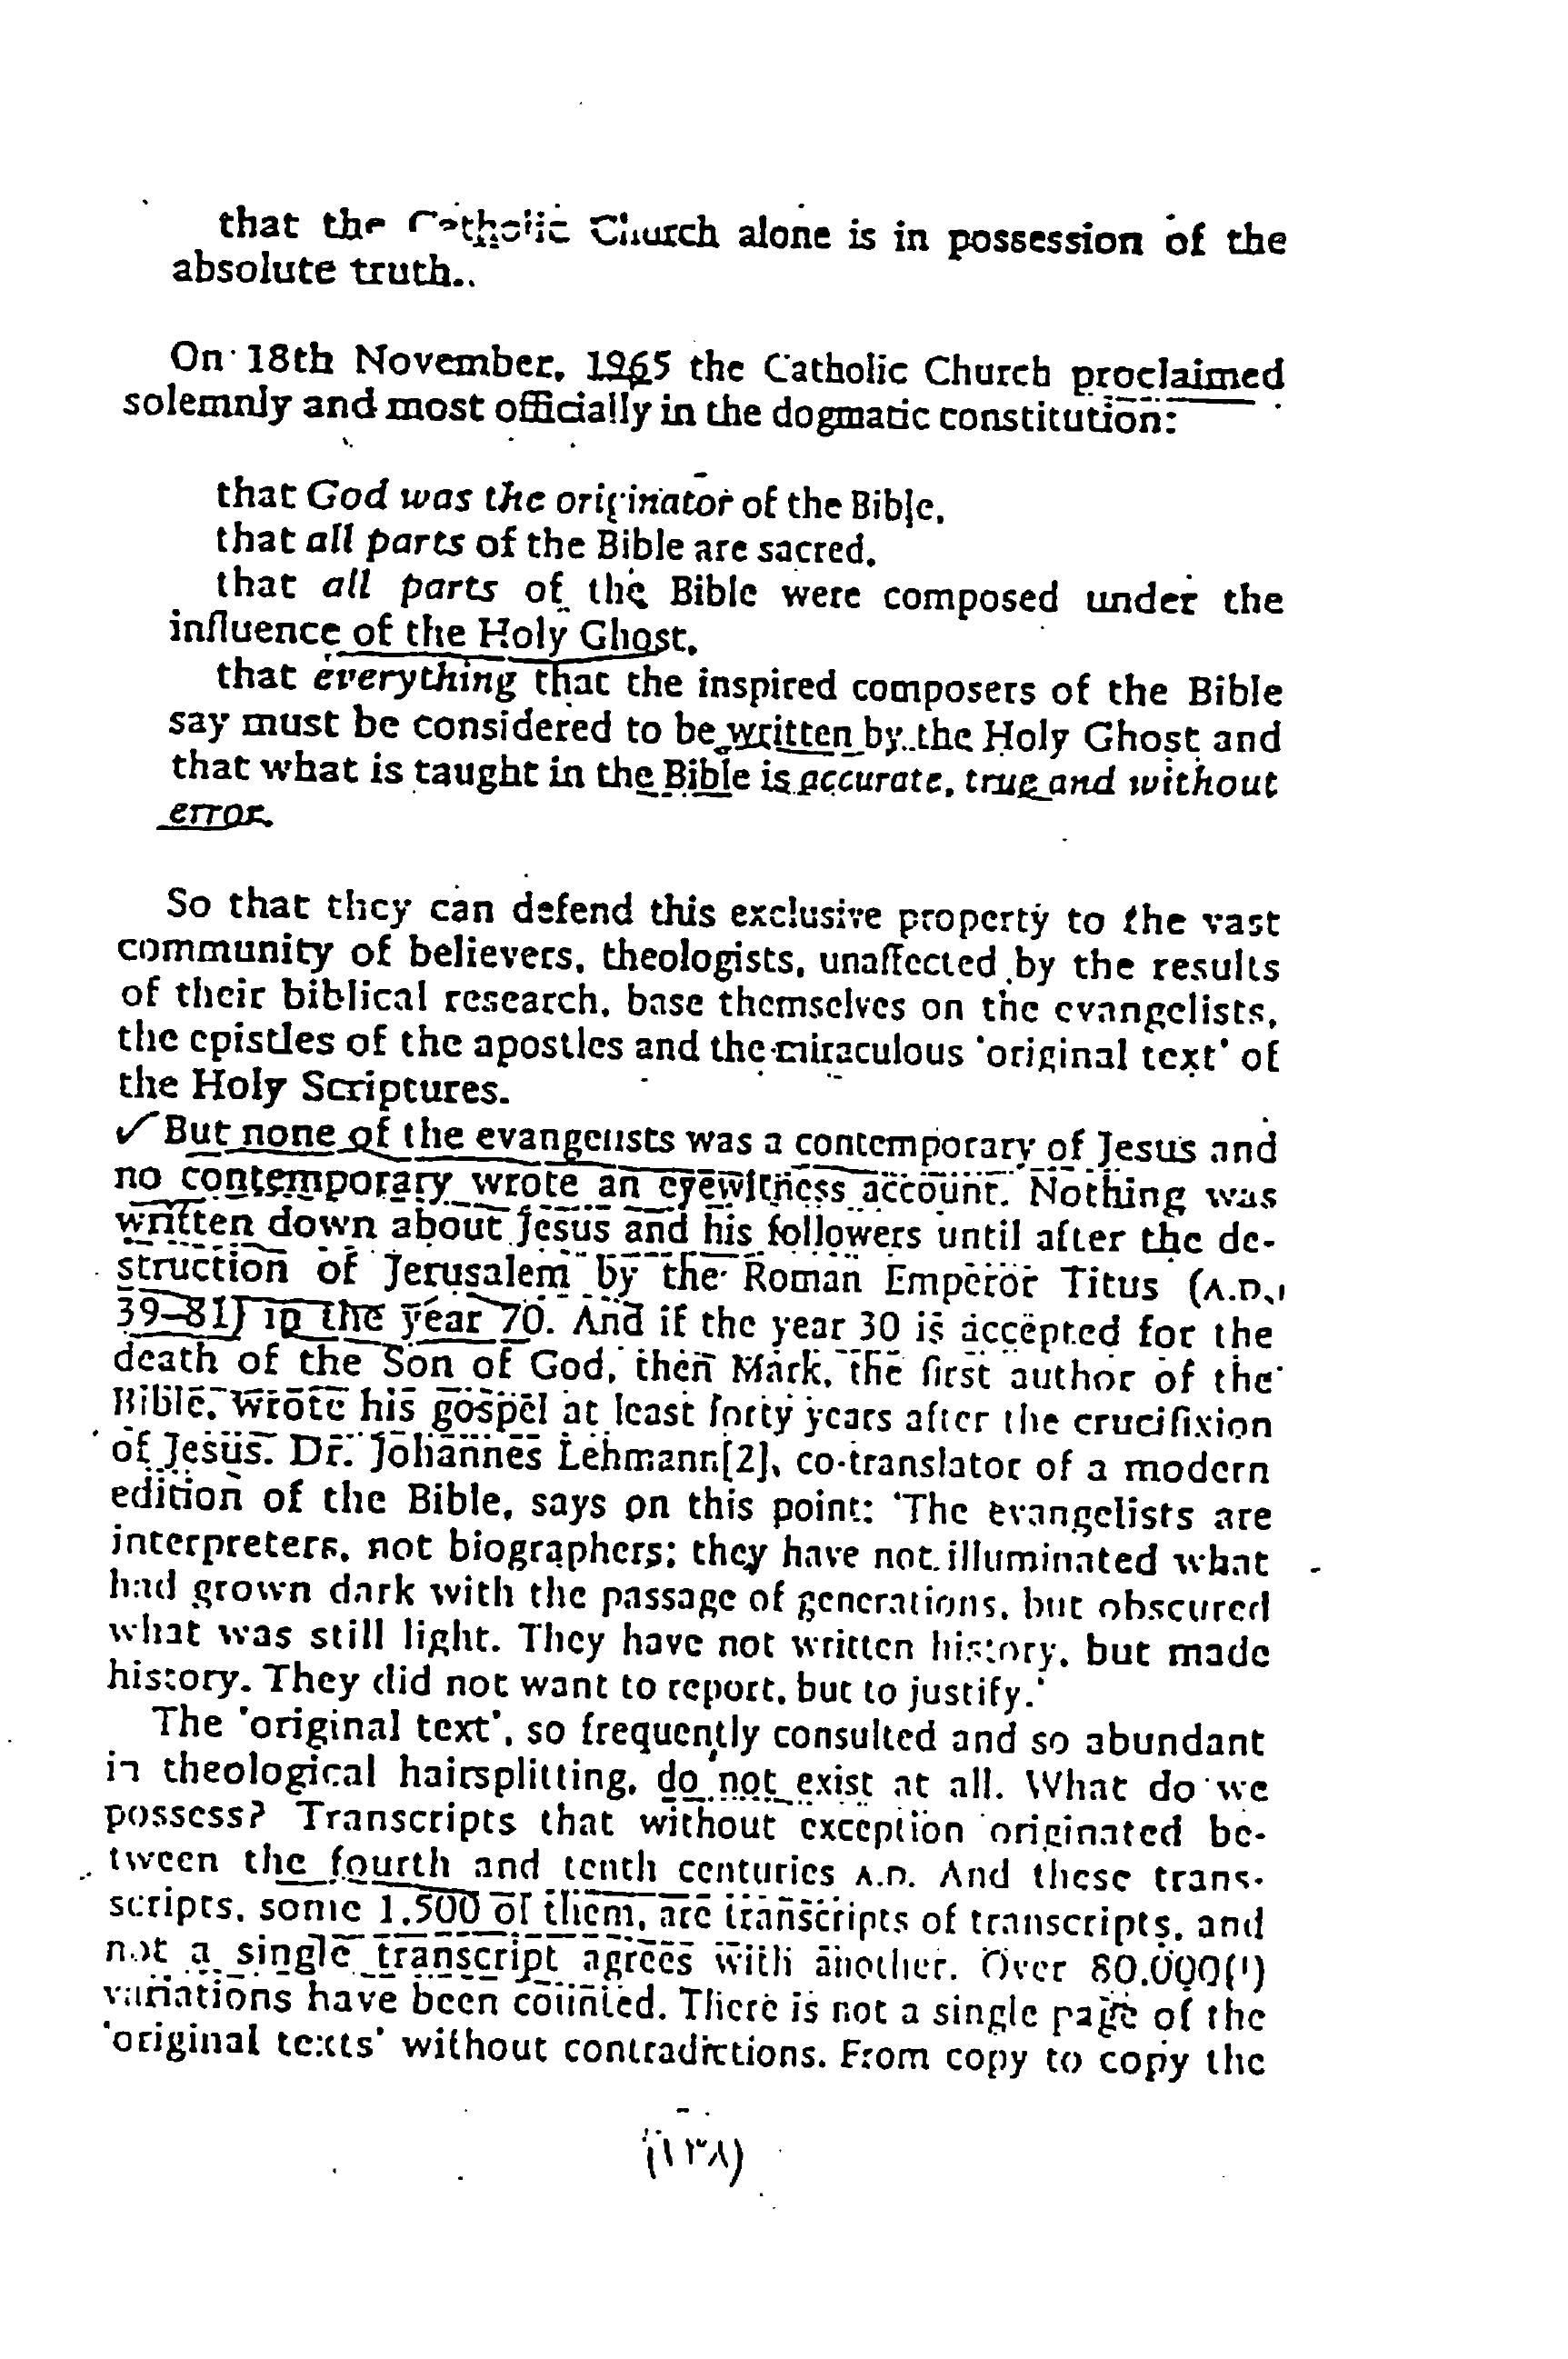 that the Catholic Church alone is in possession of the
absolute truth..
On 18th November, 1965 the Catholic Church proclaimed
solemnly and most officially in the dogmatic constitution:
that God was the originator of the Bible,
that all parts of the Bible are sacred,
that all parts of the Bible were composed under the
influence of the Holy Ghost,
that everything that the inspired composers of the Bible
say must be considered to be written by the Holy Ghost and
that what is taught in the Bible is accurate, true and without
error.
So that they can defend this exclusive property to the vast
community of believers, theologists, unaffected by the results
of their biblical research, base themselves on the evangelists,
the epistles of the apostles and the miraculous 'original text' of
the Holy Scriptures.
✓ But none of the evangelists was a contemporary of Jesus and
no contemporary wrote an eyewitness account. Nothing was
written down about Jesus and his followers until after the de-
struction of Jerusalem by the Roman Emperor Titus (A.D.
39–81) in the year 70. And if the year 30 is accepted for the
death of the Son of God, then Mark, the first author of the
Bible, wrote his gospel at least forty years after the crucifixion
of Jesus. Dr. Johannes Lehmann[2], co-translator of a modern
edition of the Bible, says on this point: 'The evangelists are
interpreters, not biographers; they have not illuminated what
had grown dark with the passage of generations, but obscured
what was still light. They have not written history, but made
history. They did not want to report, but to justify.'
The 'original text', so frequently consulted and so abundant
in theological hairsplitting, do not exist at all. What do we
possess? Transcripts that without exception originated be-
tween the fourth and tenth centuries A.D. And these trans-
scripts, some 1,500 of them, are transcripts of transcripts, and
not a single transcript agrees with another. Over 80,000(!)
variations have been counted. There is not a single page of the
'original texts' without contradictions. From copy to copy the
(١٣٨)